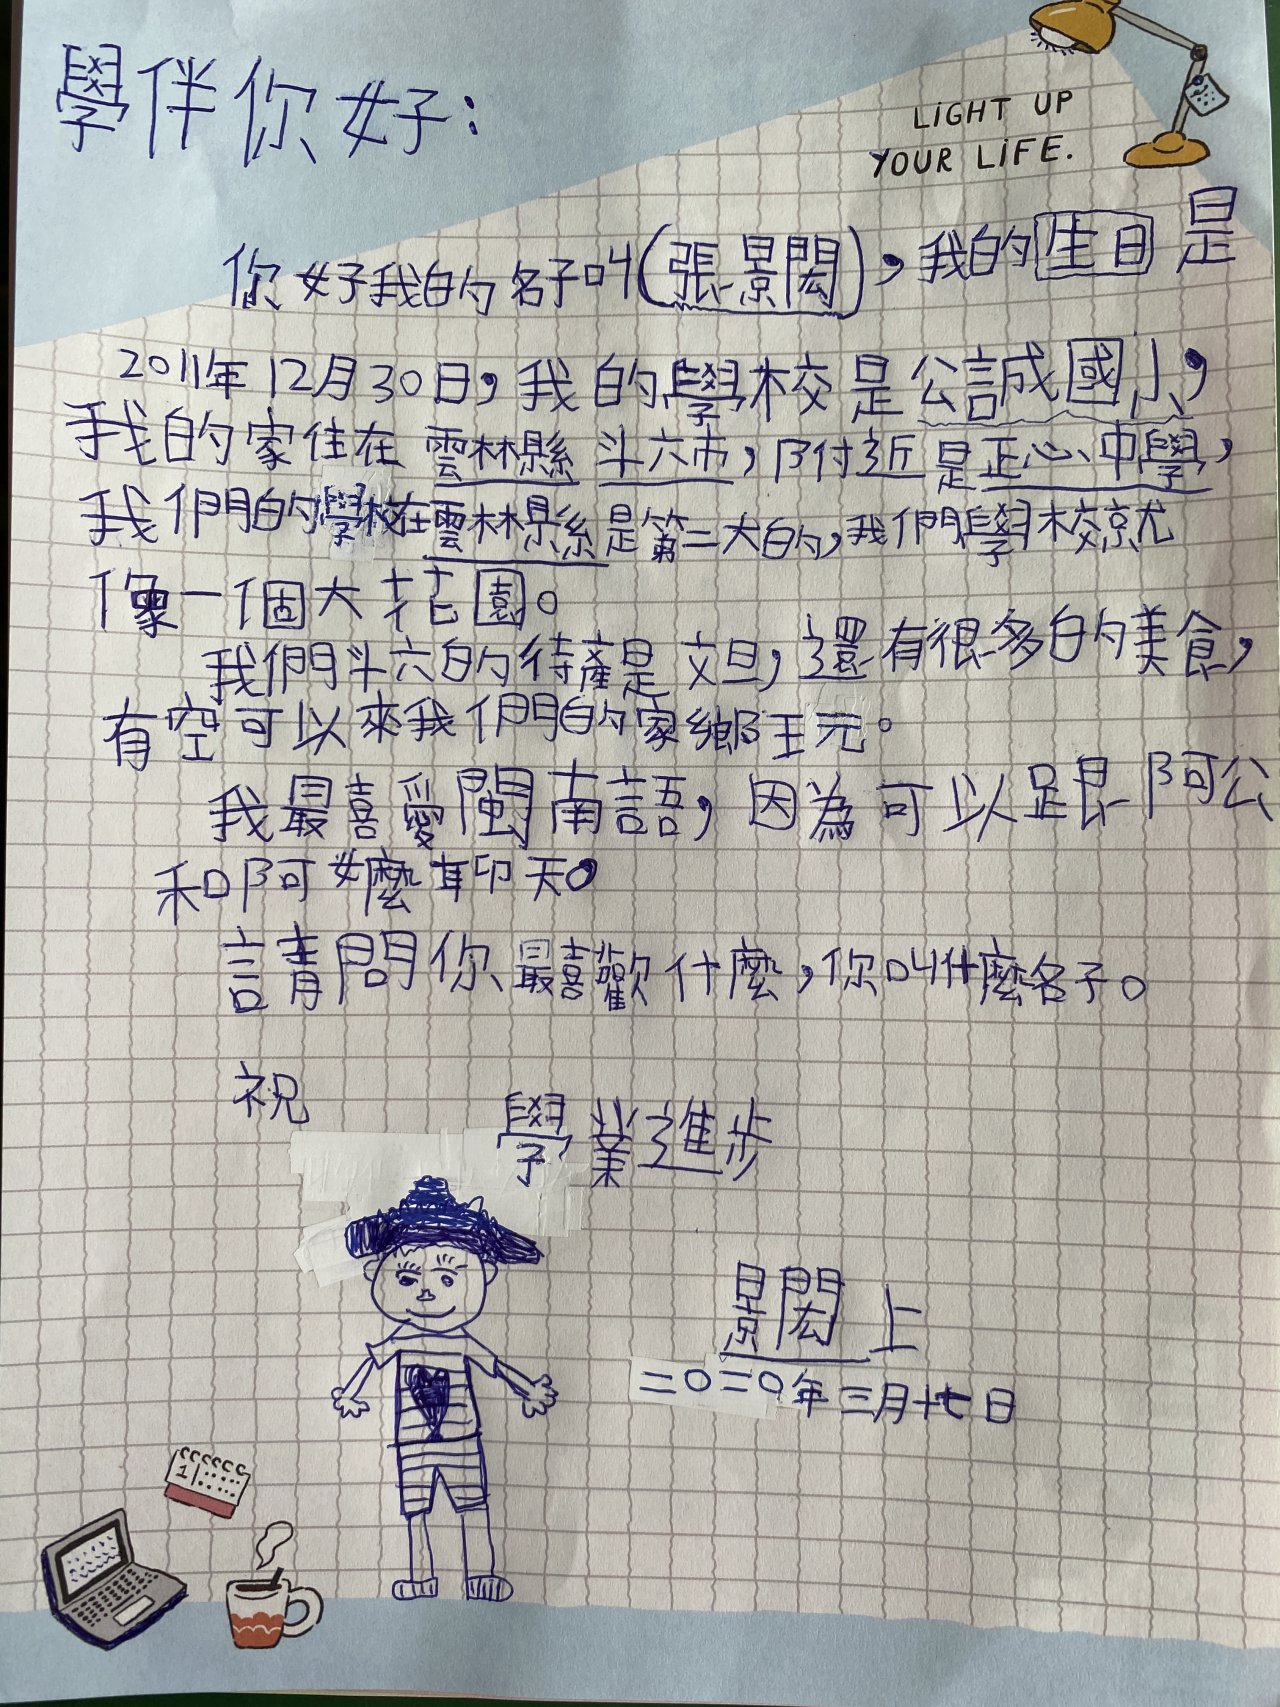 學伴你好：
LIGHT UP
YOUR LIFE.
你好我的名子叫(張景閎)，我的生日是
2011年12月30日，我的學校是公誠國小，
我的家住在雲林縣斗六市，附近是正心中學，
我們的學校在雲林縣是第二大的，我們學校就
像一個大花園。
我們斗六的待產是文旦，還有很多的美食，
有空可以來我們的家鄉王元。
我最喜愛閩南語，因為可以跟阿公
和阿嬤聊天。
請問你最喜歡什麼，你叫什麼名子。
祝
學業進步
景閎上
二０二０年三月十七日
1